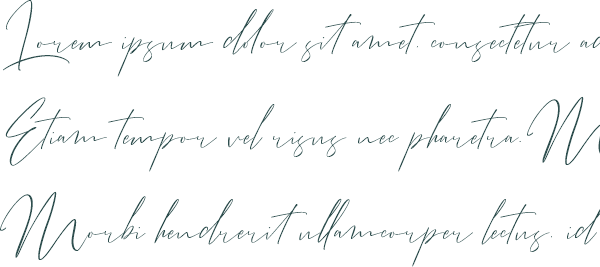 Lorem ipsum dolor sit amet. consectetur
Etiam tempor vel risus nec pharetra. M
Morbi hendrerit ullamcorper lectus. id